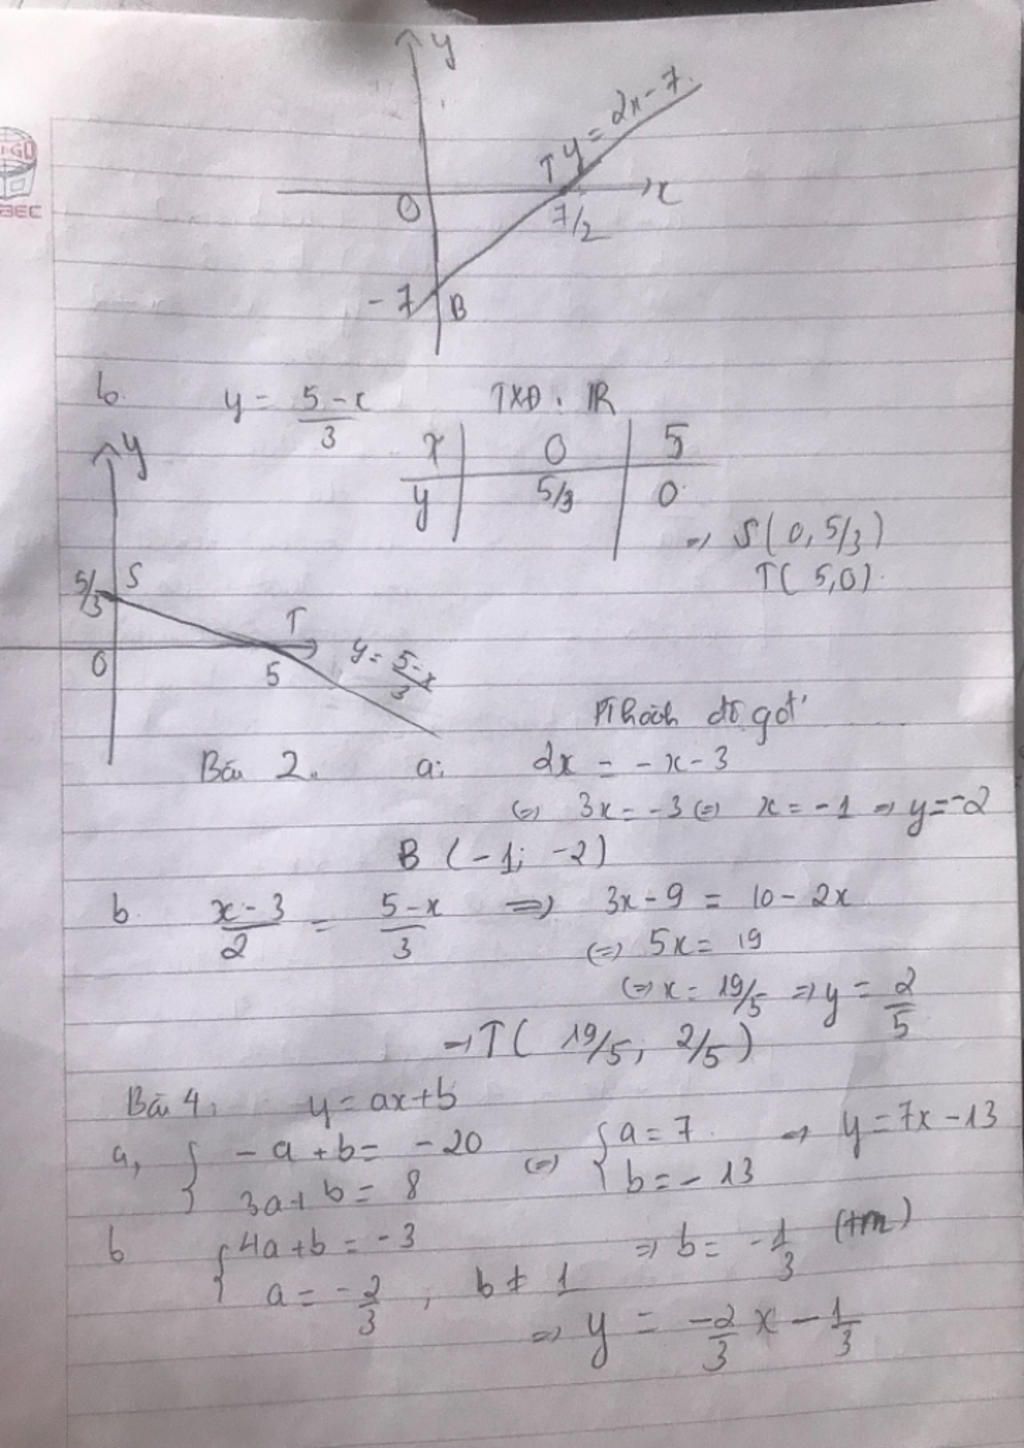 y
y = 2x - 7.
T
O
7/2
x
- 7
B
b.
y = (5 - x)/3
TXĐ : IR
x | 0 | 5
y | 5/3 | 0
=> S( 0, 5/3 )
T( 5,0).
y
5/3
S
T
O
5
y = (5-x)/3
Bài 2.
a:
2x = - x - 3
<=> 3x = - 3 <=> x = - 1 => y = -2
B ( - 1; - 2)
b. (x - 3)/2 = (5 - x)/3 => 3x - 9 = 10 - 2x
<=> 5x = 19
<=> x = 19/5 => y = 2/5
=> T( 19/5; 2/5 )
Bài 4. y = ax + b
a, { - a + b = - 20
3a + b = 8
<=> { a = 7
b = - 13
=> y = 7x - 13
b { 4a + b = - 3
a = - 2/3 , b ≠ 1
=> b = - 1/3 (tm)
=> y = -2/3 x - 1/3